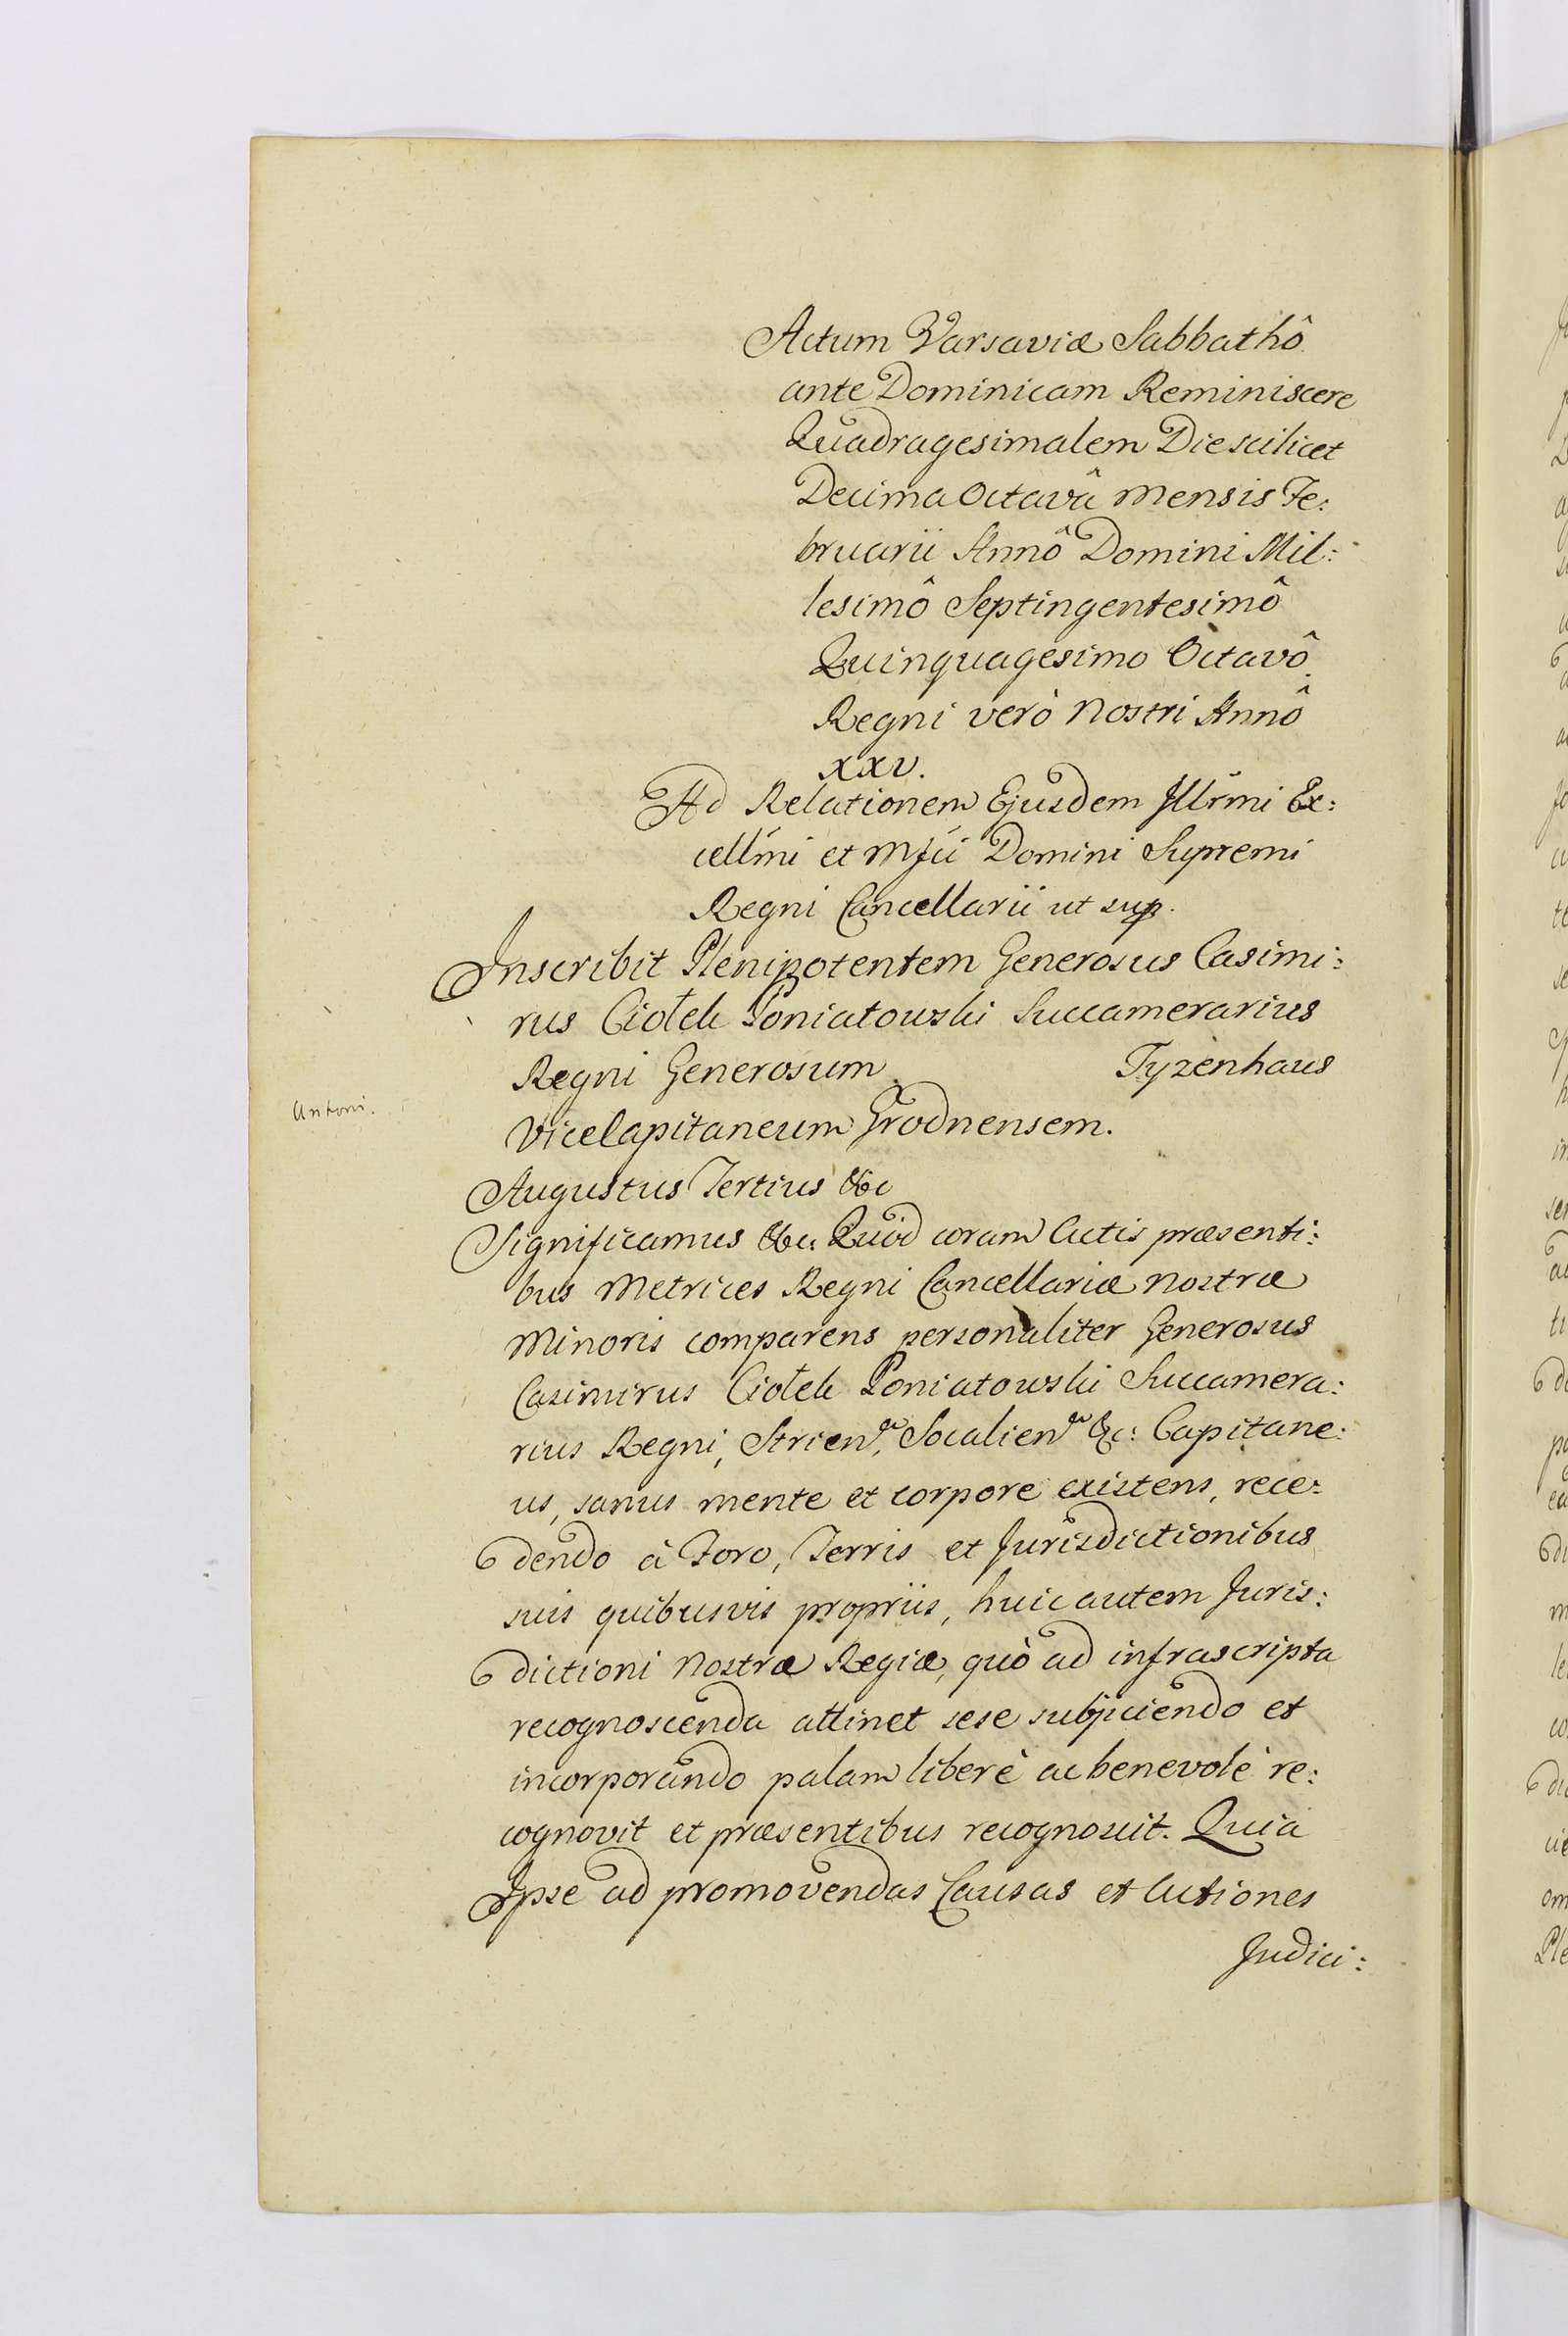 Actum Varsaviæ Sabbathô
ante Dominicam Reminiscere
Quadragesimalem Die scilicet
Decima Octavâ Mensis Fe:
bruarii Annô Domini Mil:
lesimô Septingentesimô
Quinquagesimo Octavô
Regni verò Nostri Annô
XXV.
Ad Relationem Ejusdem Illrmi Ex:
cellmi et Mfci Domini Supremi
Regni Cancellarii ut sup.
Inscribit Plenipotentem Generosus Casimi:
rus Ciołek Poniatowski Succamerarius
Regni Generosum Tyzenhaus
Antoni.
ViceCapitaneum Grodnensem.
Augustus Tertius &c
Significamus &c: Quod coram Actis præsenti:
bus Metrices Regni Cancellariæ Nostræ
Minoris comparens personaliter Generosus
Casimirus Ciołek Poniatowski Succamera:
rius Regni, Strien, Socalien &c: Capitane:
us, sanus mente et corpore existens, rece:
dendo à Foro, Terris et Jurisdictionibus
suis quibusvis propriis, huic autem Juris:
dictioni Nostræ Regiæ, quò ad infrascripta
recognoscenda attinet sese subjiciendo et
incorporando palam liberè ac benevolè re:
cognovit et præsentibus recognoscit. Quia
Ipse ad promovendas Causas et Actiones
Judici: